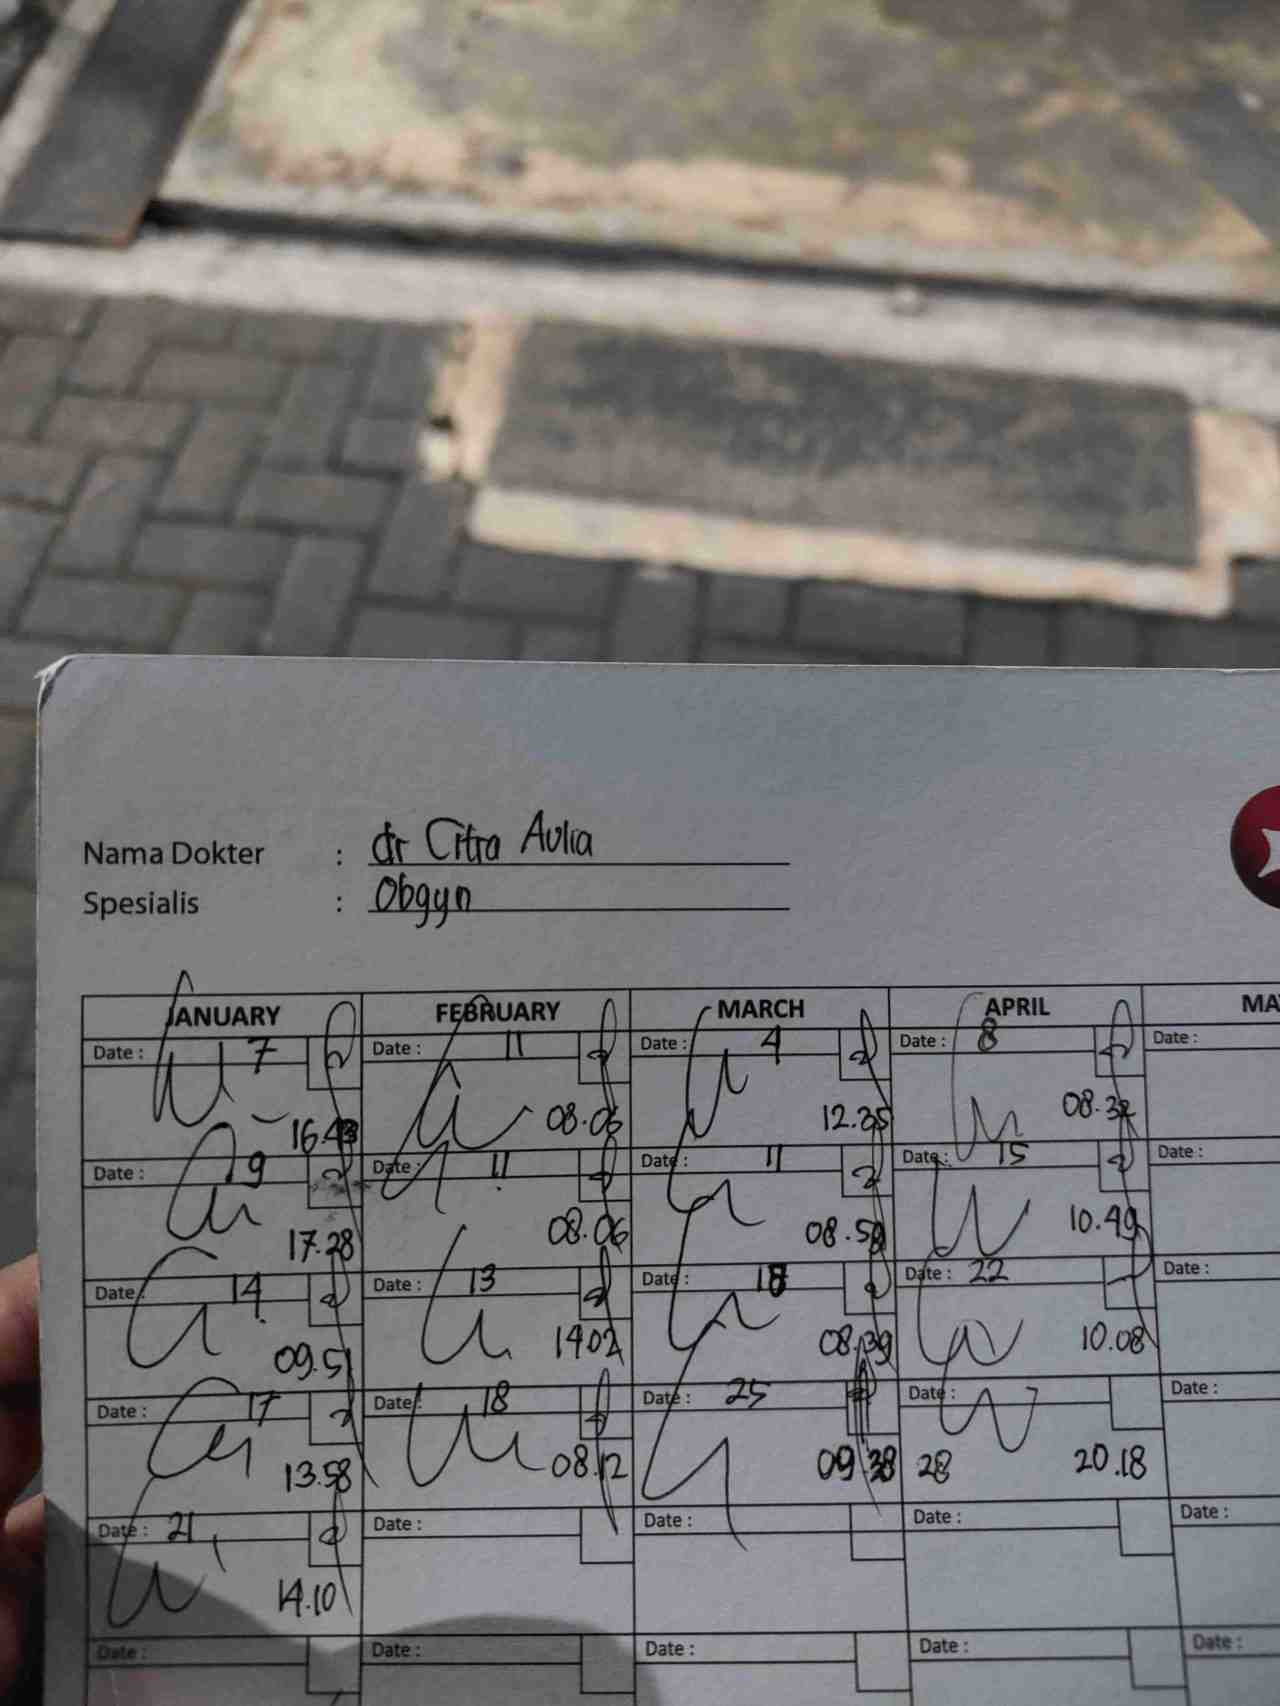 Nama Dokter : dr Citra Aulia
Spesialis : Obgyn
JANUARY FEBRUARY MARCH APRIL MA
Date : 7 Date : 11 Date : 4 Date : 8 Date :
16.43 08.06 12.35 08.32
Date : 9 Date : 11 Date : 11 Date : 15 Date :
17.28 08.06 08.59 10.49
Date : 14 Date : 13 Date : 18 Date : 22 Date :
09.51 14.02 08.39 10.08
Date : 17 Date : 18 Date : 25 Date : Date :
13.58 08.12 09.38 28 20.18
Date : 21 Date : Date : Date : Date :
14.10
Date : Date : Date : Date : Date :